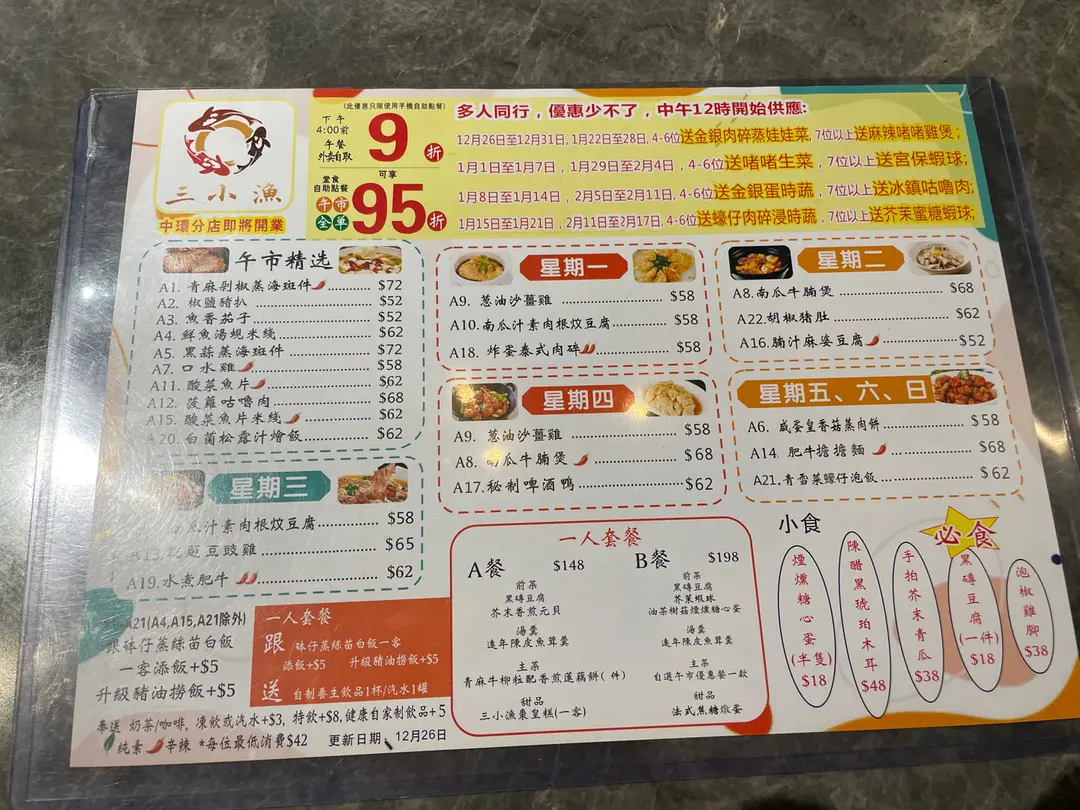 三小漁
中環分店即將開業
(此優惠只限使用手機自助點餐)
下午
4:00前
午餐
外卖自取
9折
可享
堂食
自助點餐
午市
全单
95折
多人同行，優惠少不了，中午12時開始供應:
12月26日至12月31日, 1月22日至28日, 4-6位送金銀肉碎蒸娃娃菜, 7位以上送麻辣啫啫雞煲;
1月1日至1月7日，1月29日至2月4日，4-6位送啫啫生菜，7位以上送宮保蝦球;
1月8日至1月14日，2月5日至2月11日, 4-6位送金銀蛋時蔬，7位以上送冰鎮咕嚕肉;
1月15日至1月21日, 2月11日至2月17日, 4-6位送蠔仔肉碎浸時蔬，7位以上送芥茉蜜糖蝦球;
午市精选
A1. 青麻剁椒蒸海斑件 $72
A2. 椒鹽豬扒 $52
A3. 魚香茄子 $52
A4. 鮮魚湯蜆米綫 $62
A5. 黑蒜蒸海斑件 $72
A7. 口水雞 $58
A11. 酸菜魚片 $62
A12. 菠蘿咕嚕肉 $68
A15. 酸菜魚片米綫 $62
A20. 白菌松露汁燴飯 $62
星期一
A9. 葱油沙薑雞 $58
A10. 南瓜汁素肉根炆豆腐 $58
A18. 炸蛋泰式肉碎 $58
星期二
A8. 南瓜牛腩煲 $68
A22. 胡椒猪肚 $62
A16. 腩汁麻婆豆腐 $52
星期三
瓜汁素肉根炆豆腐 $58
A13. 豆豉雞 $65
A19. 水煮肥牛 $62
星期四
A9. 葱油沙薑雞 $58
A8. 南瓜牛腩煲 $68
A17. 秘制啤酒鴨 $62
星期五、六、日
A6. 咸蛋皇香菇蒸肉餅 $58
A14. 肥牛擔擔麵 $68
A21. 青雪菜蠔仔泡飯 $62
A21(A4,A15,A21除外)
跟砵仔蒸絲苗白飯
一客添飯+$5
升級豬油撈飯+$5
一人套餐
跟 砵仔蒸絲苗白飯一客
添飯+$5 升級豬油撈飯+$5
送 自制養生飲品1杯/汽水1罐
奉送 奶茶/咖啡, 凍飲或汽水+$3, 特飲+$8,健康自家制飲品+5
純素 辛辣 *每位最低消費$42 更新日期：12月26日
一人套餐
A餐 $148
前菜
黑磚豆腐
芥末香煎元貝
湯羹
遠年陳皮魚茸羹
主菜
青麻牛柳粒配香煎蓮藕餅(件)
甜品
三小漁棗皇糕(一客)
B餐 $198
前菜
黑磚豆腐
芥茉蝦球
油茶樹菇煙燻糖心蛋
湯羹
遠年陳皮魚茸羹
主菜
自選午市優惠餐一款
甜品
法式焦糖燉蛋
小食
必食
煙燻糖心蛋(半隻) $18
陳醋黑琥珀木耳 $48
手拍芥末青瓜 $38
黑磚豆腐(一件) $18
泡椒雞腳 $38